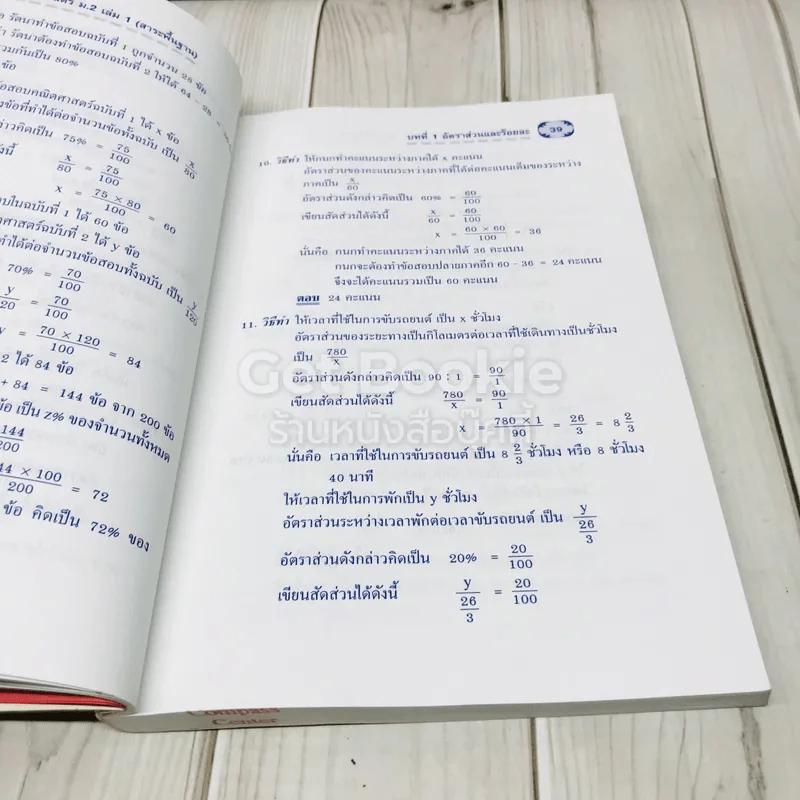 ม.2 เล่ม 1 (สาระพื้นฐาน)
รัตนาทำข้อสอบฉบับที่ 1 ถูกจำนวน 28 ข้อ
รัตนาต้องทำข้อสอบฉบับที่ 2 ให้ได้ 64 - 28 =
รวมกันเป็น 80%
ข้อ
ข้อสอบคณิตศาสตร์ฉบับที่ 1 ได้ x ข้อ
ข้อที่ทำได้ต่อจำนวนข้อทั้งฉบับ เป็น x/80
คิดเป็น 75% = 75/100
x/80 = 75/100
x = 75 × 80/100 = 60
ในฉบับที่ 1 ได้ 60 ข้อ
ศาสตร์ฉบับที่ 2 ได้ y ข้อ
ทำได้ต่อจำนวนข้อสอบทั้งฉบับ เป็น y/120
70% = 70/100
= 70/100
= 70 × 120/100 = 84
2 ได้ 84 ข้อ
+ 84 = 144 ข้อ จาก 200 ข้อ
ข้อ เป็น z% ของจำนวนทั้งหมด
144/200
44 × 100/200 = 72
ข้อ คิดเป็น 72% ของ
บทที่ 1 อัตราส่วนและร้อยละ 39
10. วิธีทำ ให้กนกทำคะแนนระหว่างภาคได้ x คะแนน
อัตราส่วนของคะแนนระหว่างภาคที่ได้ต่อคะแนนเต็มของระหว่าง
ภาคเป็น x/60
อัตราส่วนดังกล่าวคิดเป็น 60% = 60/100
เขียนสัดส่วนได้ดังนี้ x/60 = 60/100
x = 60 × 60/100 = 36
นั่นคือ กนกทำคะแนนระหว่างภาคได้ 36 คะแนน
กนกจะต้องทำข้อสอบปลายภาคอีก 60 - 36 = 24 คะแนน
จึงจะได้คะแนนรวมเป็น 60 คะแนน
ตอบ 24 คะแนน
11. วิธีทำ ให้เวลาที่ใช้ในการขับรถยนต์ เป็น x ชั่วโมง
อัตราส่วนของระยะทางเป็นกิโลเมตรต่อเวลาที่ใช้เดินทางเป็นชั่วโมง
เป็น 780/x
อัตราส่วนดังกล่าวคิดเป็น 90 : 1 = 90/1
เขียนสัดส่วนได้ดังนี้ 780/x = 90/1
x = 780 × 1/90 = 26/3 = 8 2/3
นั่นคือ เวลาที่ใช้ในการขับรถยนต์ เป็น 8 2/3 ชั่วโมง หรือ 8 ชั่วโมง
40 นาที
ให้เวลาที่ใช้ในการพักเป็น y ชั่วโมง
อัตราส่วนระหว่างเวลาพักต่อเวลาขับรถยนต์ เป็น y/(26/3)
อัตราส่วนดังกล่าวคิดเป็น 20% = 20/100
เขียนสัดส่วนได้ดังนี้ y/(26/3) = 20/100
Get Bookie
ร้านหนังสือบุ๊คกี้
Compass
Center